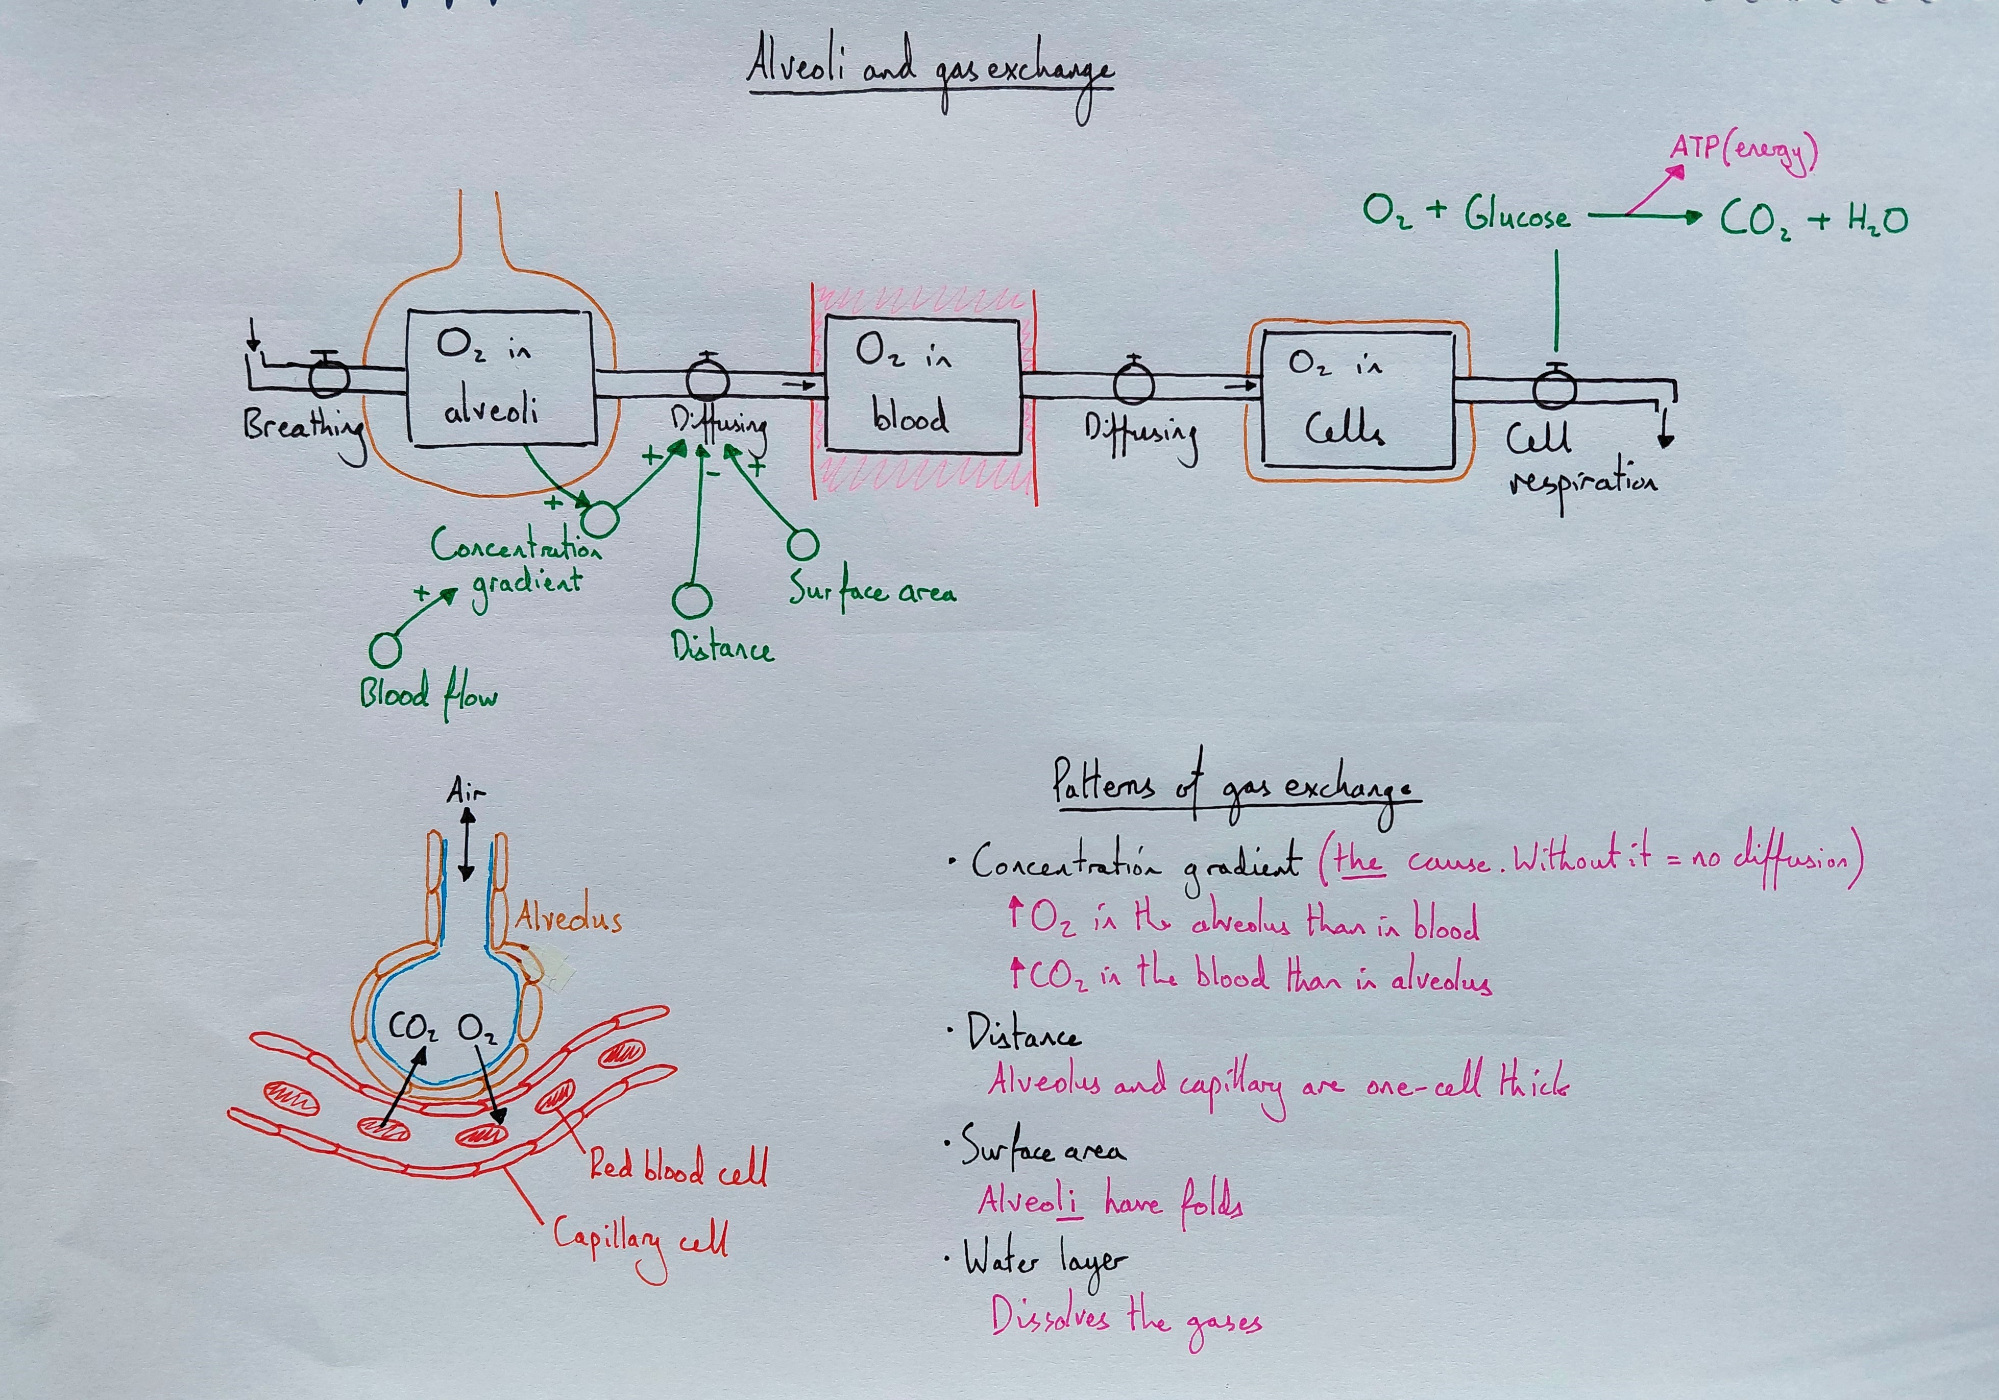 Alveoli and gas exchange
ATP (energy)
O₂ + Glucose → CO₂ + H₂O
O₂ in
alveoli
O₂ in
blood
O₂ in
Cells
Breathing
Diffusing
Diffusing
Cell
respiration
+
+
-
+
Concentration
gradient
+
Surface area
Distance
Blood flow
Air
Alveolus
CO₂ O₂
Red blood cell
Capillary cell
Patterns of gas exchange
· Concentration gradient (the cause. Without it = no diffusion)
↑ O₂ in the alveolus than in blood
↑ CO₂ in the blood than in alveolus
· Distance
Alveolus and capillary are one-cell thick
· Surface area
Alveoli have folds
· Water layer
Dissolves the gases